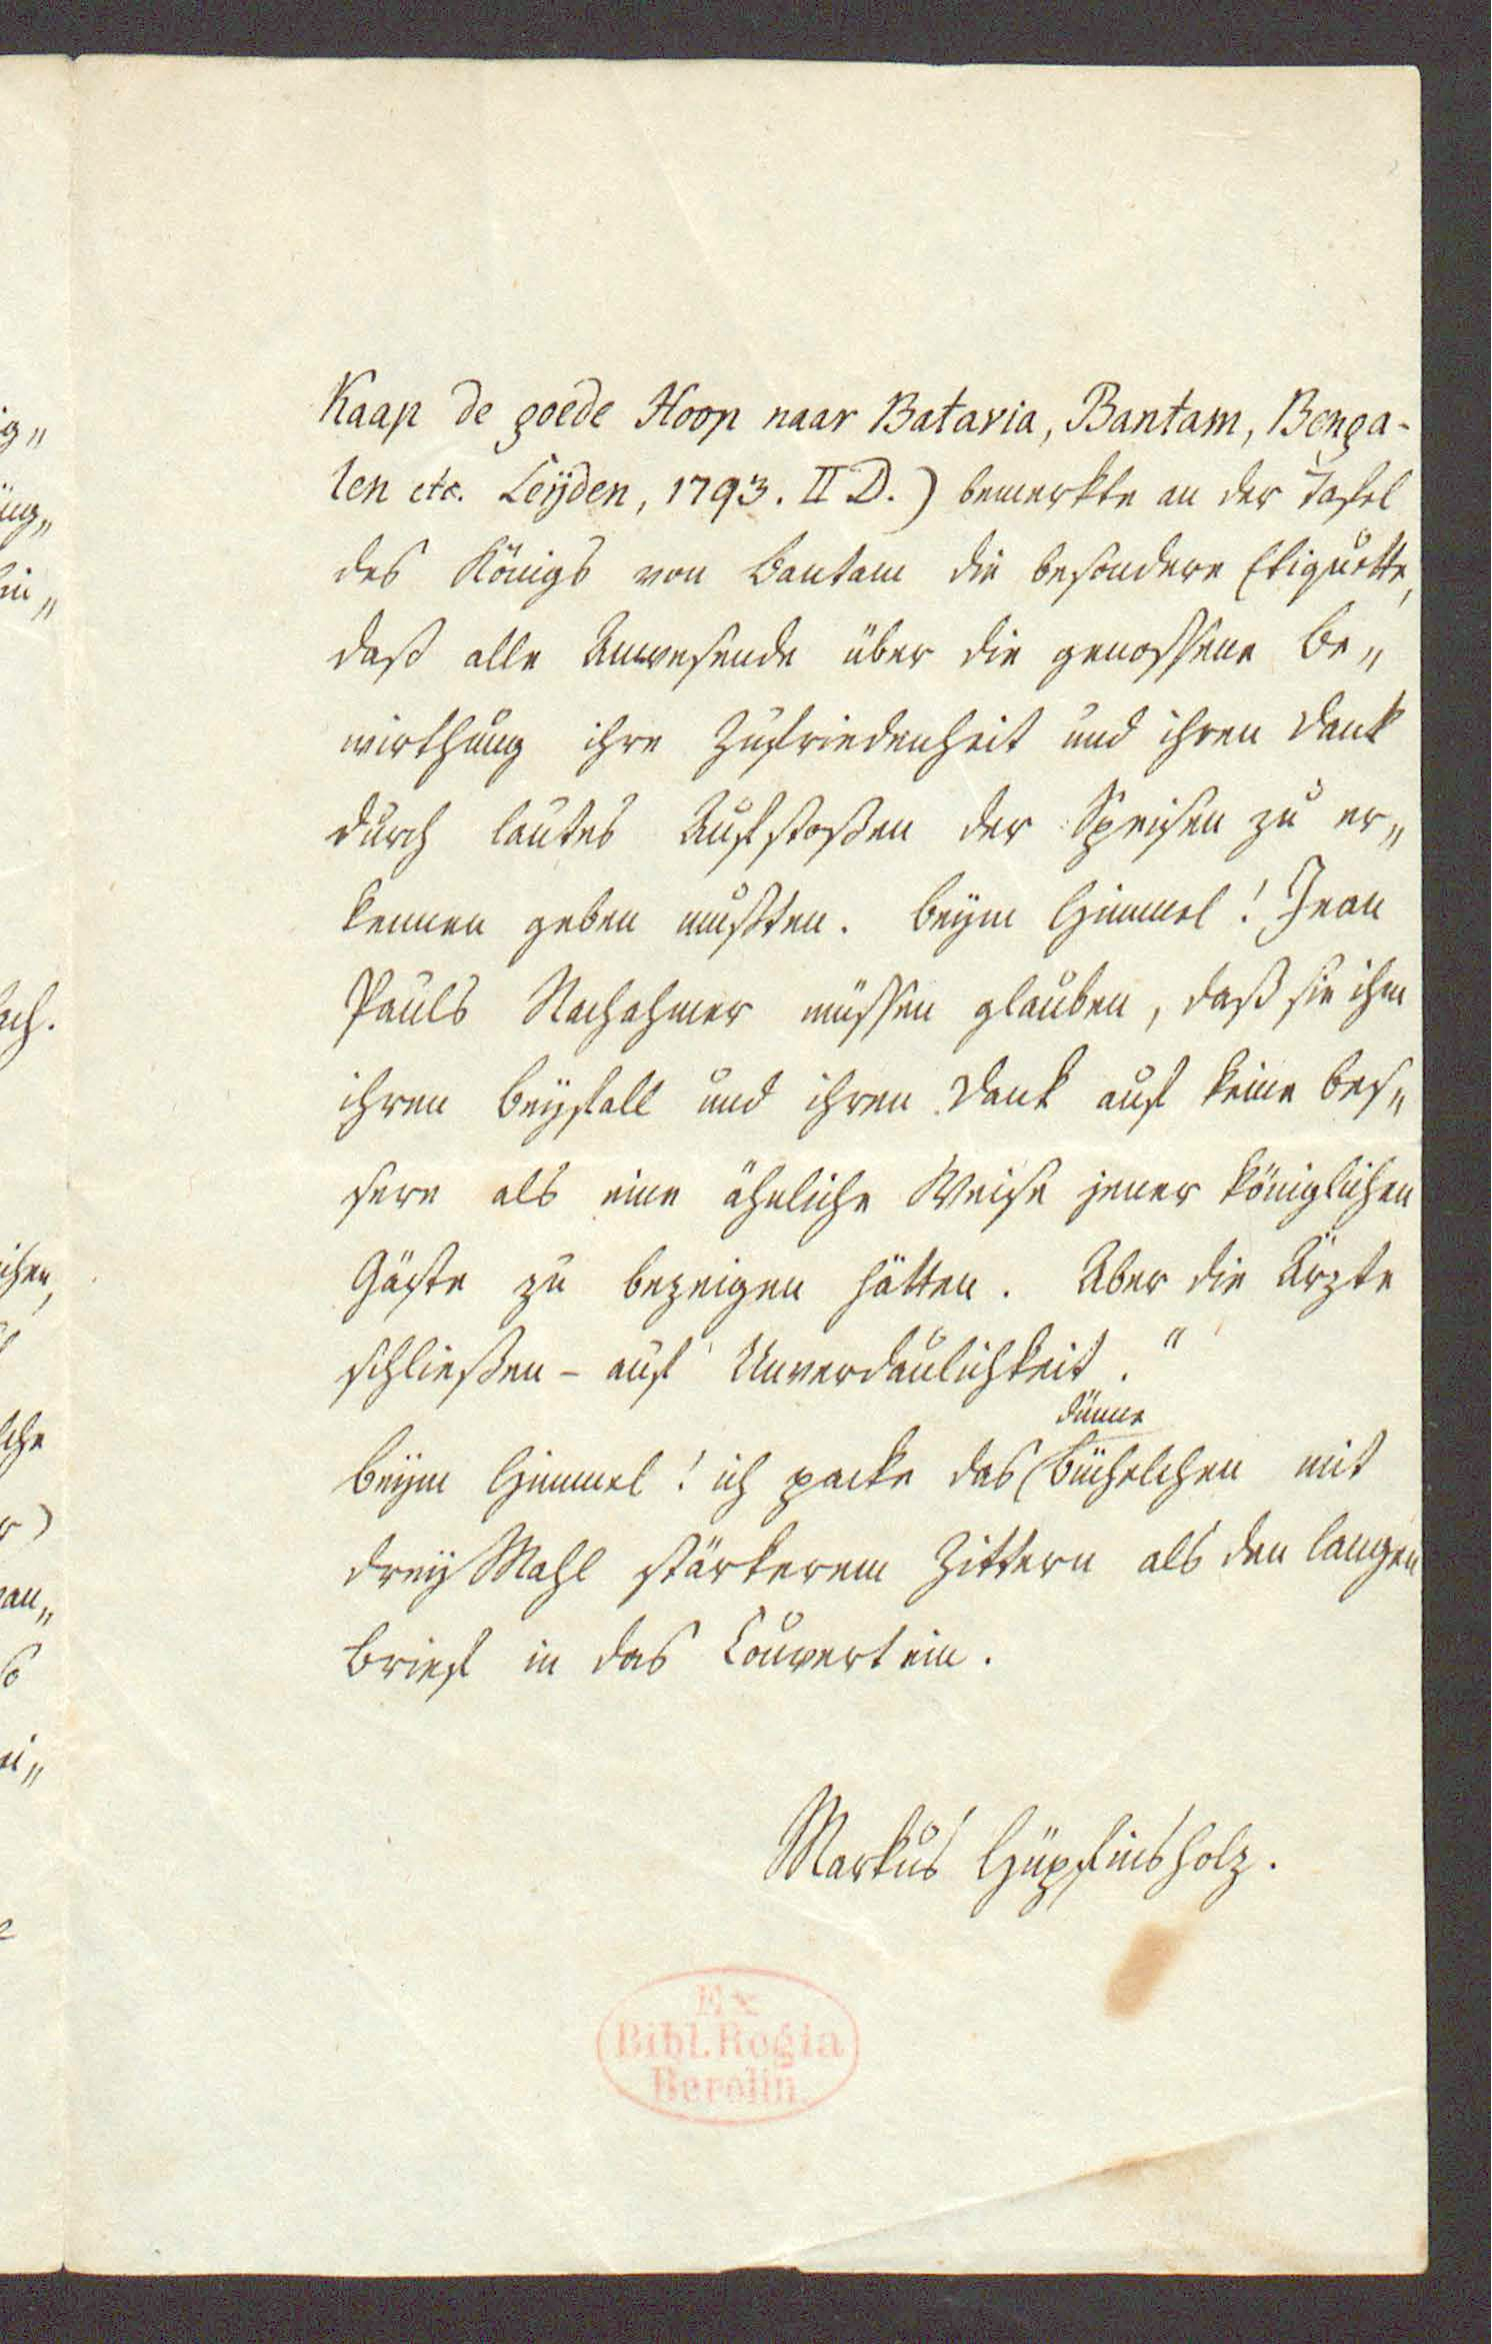 Kaap de goede Hoop naar Batavia, Bantam, Benga-
len etc. Leÿden, 1793. II D.) bemerkte an der Tafel
des Königs von Bantam die besondere Etiquette,
daß alle Anwesende über die genossene Be„
wirthung ihre Zufriedenheit und ihren Dank
durch lautes Aufstoßen der Speisen zu er„
kennen geben mußten. Beÿm Himmel! Jean
Pauls Nachahmer müssen glauben, daß sie ihm
ihren Beÿfall und ihren Dank auf keine bes„
sere als eine ähnliche Weise jener königlichen
Gäste zu bezeigen hätten. Aber die Ärzte
schließen – auf Unverdaulichkeit."
dünne
Beÿm Himmel! ich packe das Büchelchen mit
dreÿ Mahl stärkerem Zittern als den langen
Brief in das Couvert ein.
Markus Hüpfinsholz.
Ex
Bibl. Regia
Berolin.